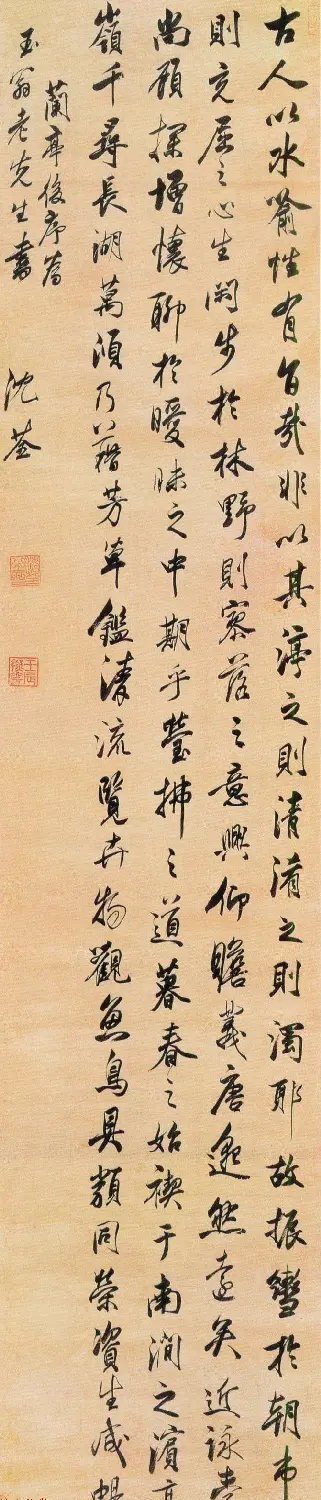 古人以水喻性有旨哉非以其渟之則清淆之則濁耶故振轡於朝市
則充屈之心生闊步於林野則寥落之意興仰瞻羲唐邈然遠矣近詠臺
閣顧探增懷聊於曖昧之中期乎瑩拂之道暮春之始禊于南澗之濱高
嶺千尋長湖萬頃乃藉芳草鑑清流覽卉物觀魚鳥具類同榮資生咸暢
蘭亭後序為
玉翁老先生書 沈荃